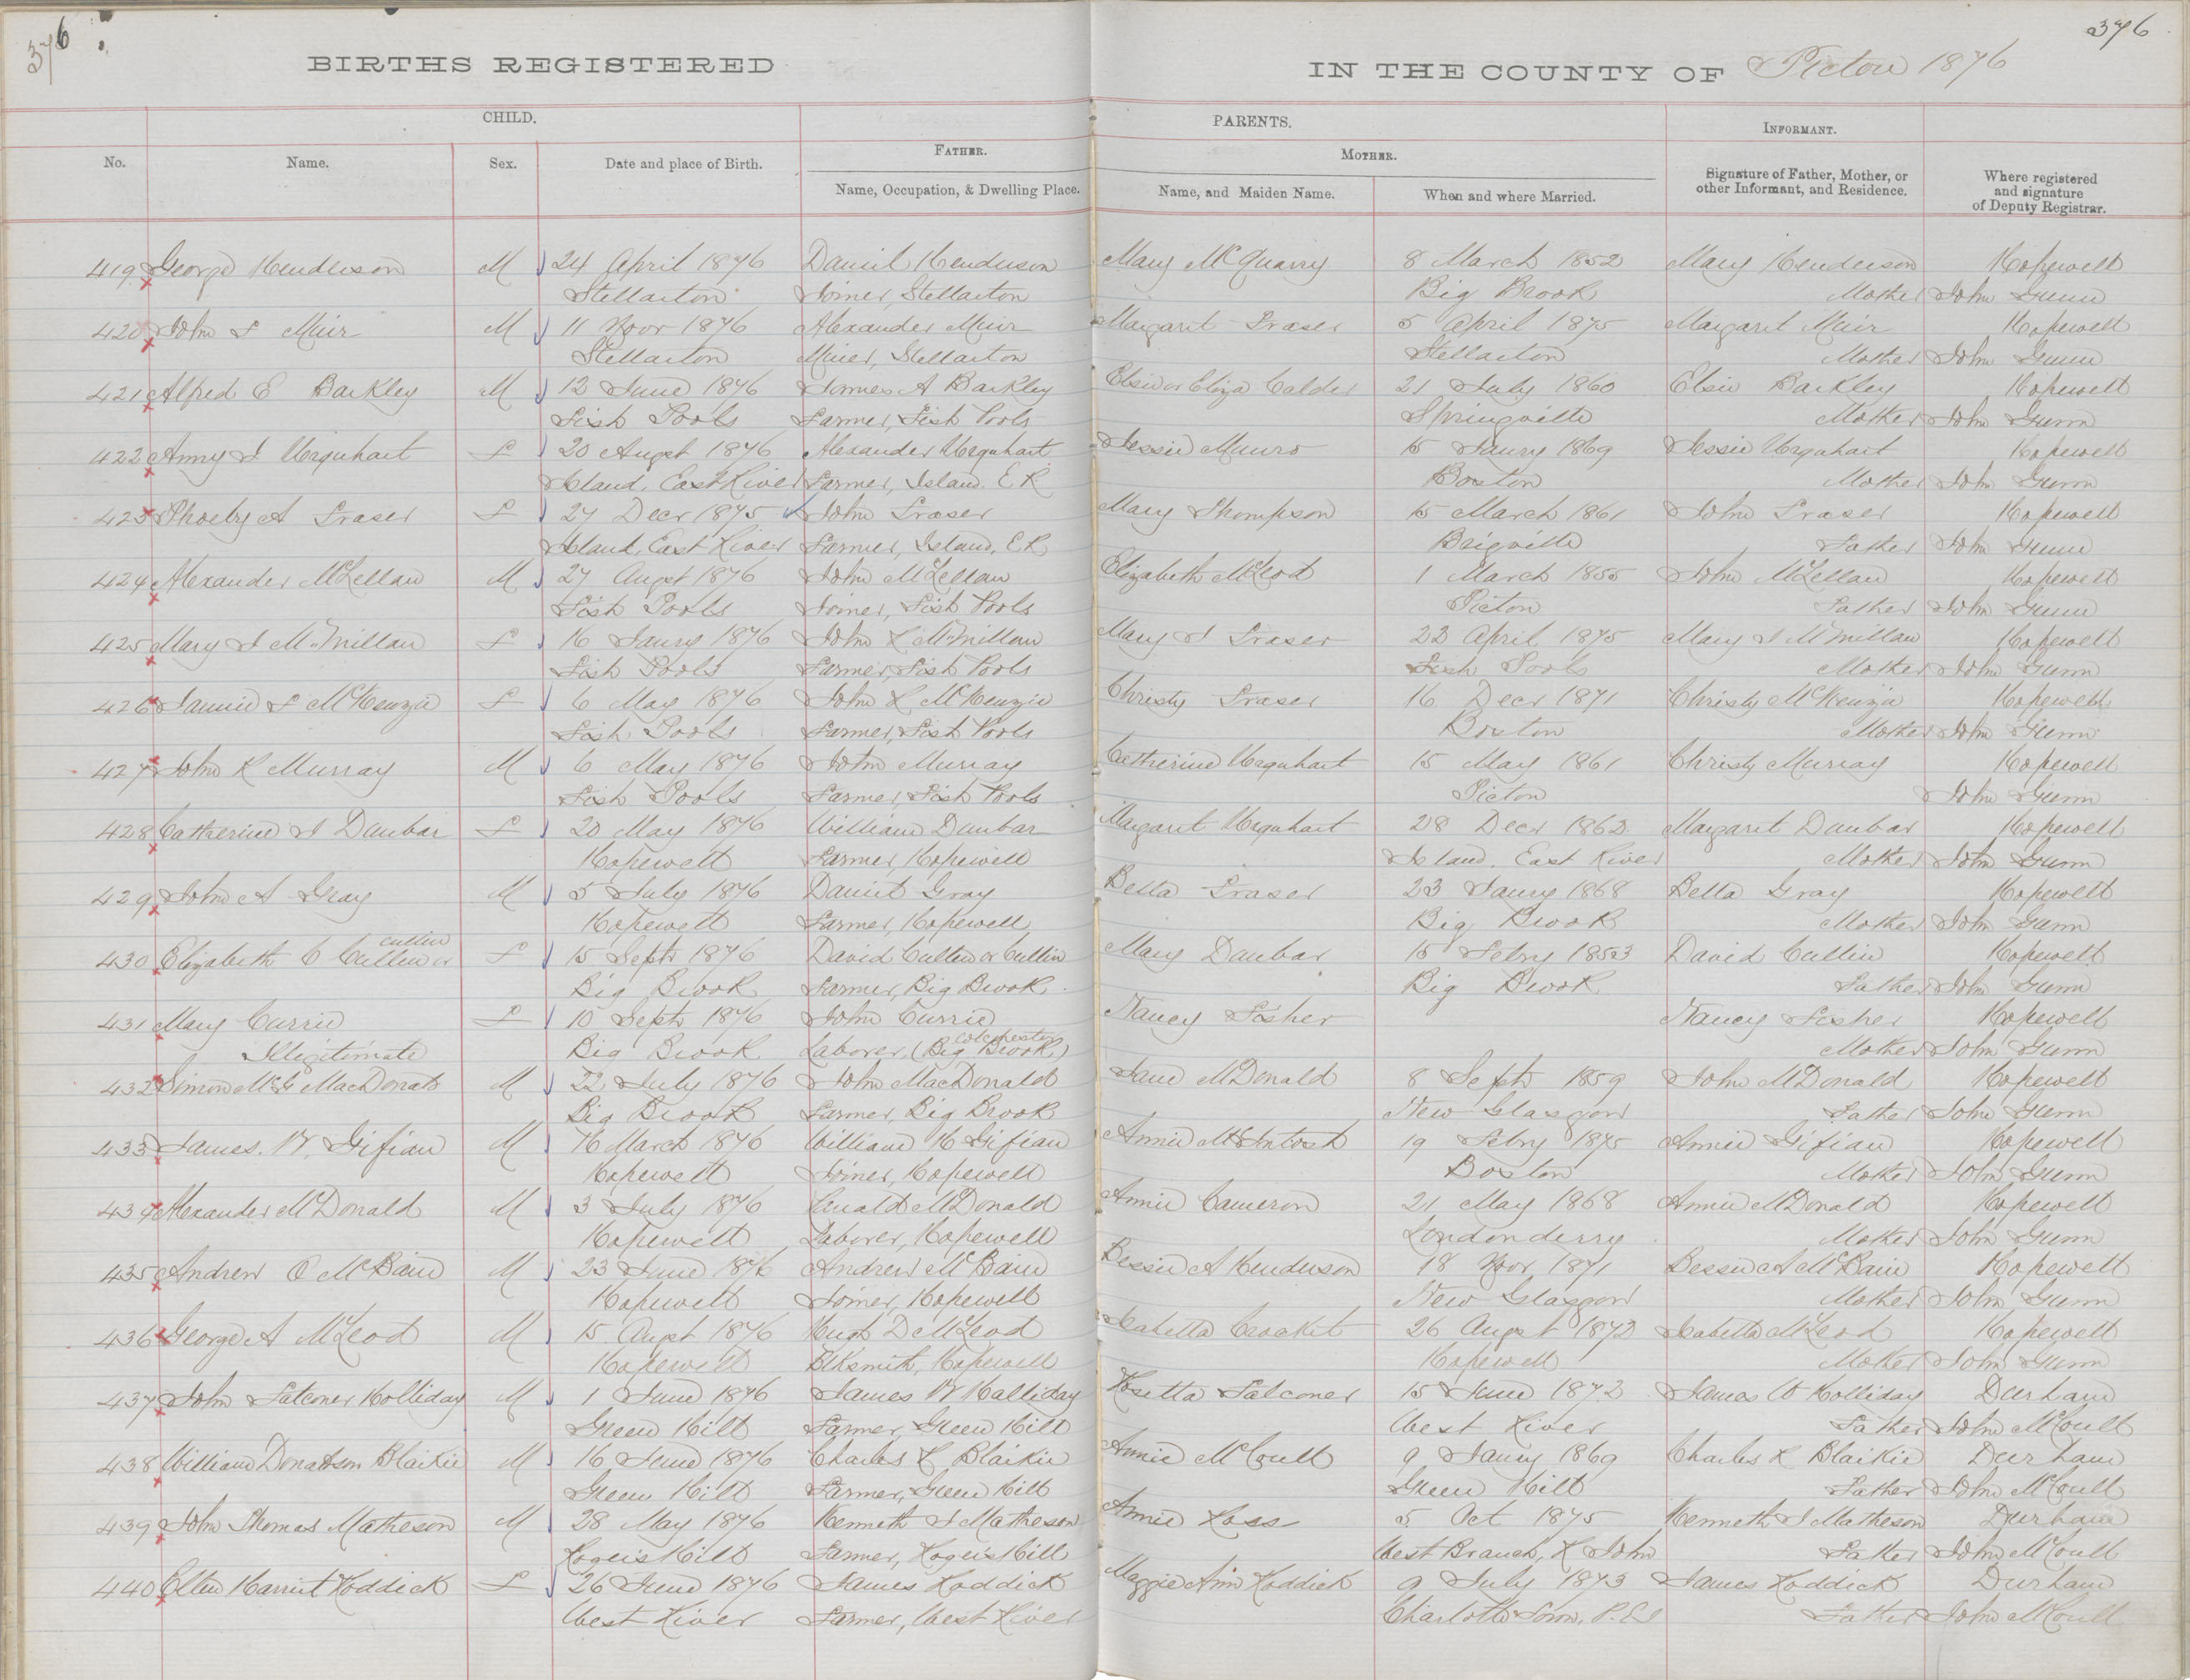 376
376
BIRTHS REGISTERED IN THE COUNTY OF Pictou 1876
CHILD. PARENTS. INFORMANT.
No. Name. Sex. Date and place of Birth. FATHER. Name, Occupation, & Dwelling Place. MOTHER. Name, and Maiden Name. When and where Married. Signature of Father, Mother, or other Informant, and Residence. Where registered and signature of Deputy Registrar.
419 George Henderson M 24 April 1876 Daniel Henderson Mary McQuarry 8 March 1852 Mary Henderson Hopewell
Stellarton Joiner, Stellarton Big Brook Mother John Gunn
420 John F Muir M 11 Novr 1876 Alexander Muir Margaret Fraser 5 April 1875 Margaret Muir Hopewell
Stellarton Miner, Stellarton Stellarton Mother John Gunn
421 Alfred E Barkley M 12 June 1876 James A Barkley Elsie or Eliza Calder 21 July 1860 Elsie Barkley Hopewell
Fish Pools Farmer, Fish Pools Springville Mother John Gunn
422 Anny J Urquhart F 20 Augst 1876 Alexander Urquhart Jessie Munro 15 Jany 1869 Jessie Urquhart Hopewell
Island, East River Farmer, Island. E R Boston Mother John Gunn
423 Phoeby A Fraser F 27 Decr 1875 John Fraser Mary Thompson 15 March 1861 John Fraser Hopewell
Island, East River Farmer, Island, E R Father John Gunn
424 Alexander McLellan M 27 Augst 1876 John McLellan Elizabeth McLeod 1 March 1855 John McLellan Hopewell
Fish Pools Joiner, Fish Pools Picton Father John Gunn
425 Mary J McMillan F 16 Jany 1876 John R McMillan Mary J Fraser 22 April 1875 Mary J McMillan Hopewell
Fish Pools Farmer, Fish Pools Fish Pools Mother John Gunn
426 Jamie F McKenzie F 6 May 1876 John R McKenzie Christy Fraser 16 Decr 1871 Christy McKenzie Hopewell
Fish Pools Farmer, Fish Pools Boston Mother John Gunn
427 John R Murray M 6 May 1876 John Murray Catherine Urquhart 15 May 1861 Christy Murray Hopewell
Fish Pools Farmer, Fish Pools Picton John Gunn
428 Catherine J Dunbar F 20 May 1876 William Dunbar Margaret Urquhart 28 Decr 1862 Margaret Dunbar Hopewell
Hopewell Farmer, Hopewell Island, East River Mother John Gunn
429 John A Gray M 5 July 1876 Daniel Gray Bella Fraser 23 Jany 1868 Bella Gray Hopewell
Hopewell Farmer, Hopewell Big Brook Mother John Gunn
430 Elizabeth C Cullin or Cullen F 15 Septr 1876 David Cullen or Cullin Mary Dunbar 15 Febry 1853 David Cullin Hopewell
Big Brook Farmer, Big Brook Big Brook Father John Gunn
431 Mary Currie F 10 Septr 1876 John Currie Nancy Fisher Nancy Fisher Hopewell
Illegitimate Big Brook Laborer, (Big Brook) Colchester Mother John Gunn
432 Simon McG MacDonald M 22 July 1876 John MacDonald Jane McDonald 8 Septr 1859 John McDonald Hopewell
Big Brook Farmer, Big Brook New Glasgow Father John Gunn
433 James. W. Gifian M 16 March 1876 William H Gifian Annie McIntosh 19 Febry 1875 Annie Gifian Hopewell
Hopewell Joiner, Hopewell Boston Mother John Gunn
434 Alexander McDonald M 3 July 1876 McDonald Annie Cameron 21 May 1868 Annie McDonald Hopewell
Hopewell Laborer, Hopewell Londonderry Mother John Gunn
435 Andrew O McBain M 23 June 1876 Andrew McBain Bessie A Henderson 18 Novr 1871 Bessie A McBain Hopewell
Hopewell Joiner, Hopewell New Glasgow Mother John Gunn
436 George A McLeod M 15 Augst 1876 Hugh D McLeod Isabella Crocket 26 Augst 1873 Isabella McLeod Hopewell
Hopewell Blksmith, Hopewell Hopewell Mother John Gunn
437 John Falconer Holliday M 1 June 1876 James W Halliday Rosetta Falconer 15 June 1872 James W Holliday Durham
Green Hill Farmer, Green Hill West River Father John McCoull
438 William Donaldson Blaikie M 16 June 1876 Charles R Blaikie Annie McCoull 9 Jany 1869 Charles R Blaikie Durham
Green Hill Farmer, Green Hill Green Hill Father John McCoull
439 John Thomas Matheson M 28 May 1876 Kenneth J Matheson Annie Ross 5 Oct 1875 Kenneth J Matheson Durham
Rogers Hill Farmer, Rogers Hill West Branch, R John Father John McCoull
440 Ellen Harriet Roddick F 26 June 1876 James Roddick Maggie Ann Roddick 9 July 1873 James Roddick Durham
West River Farmer, West River Charlotte Town, P.E.I Father John McCoull